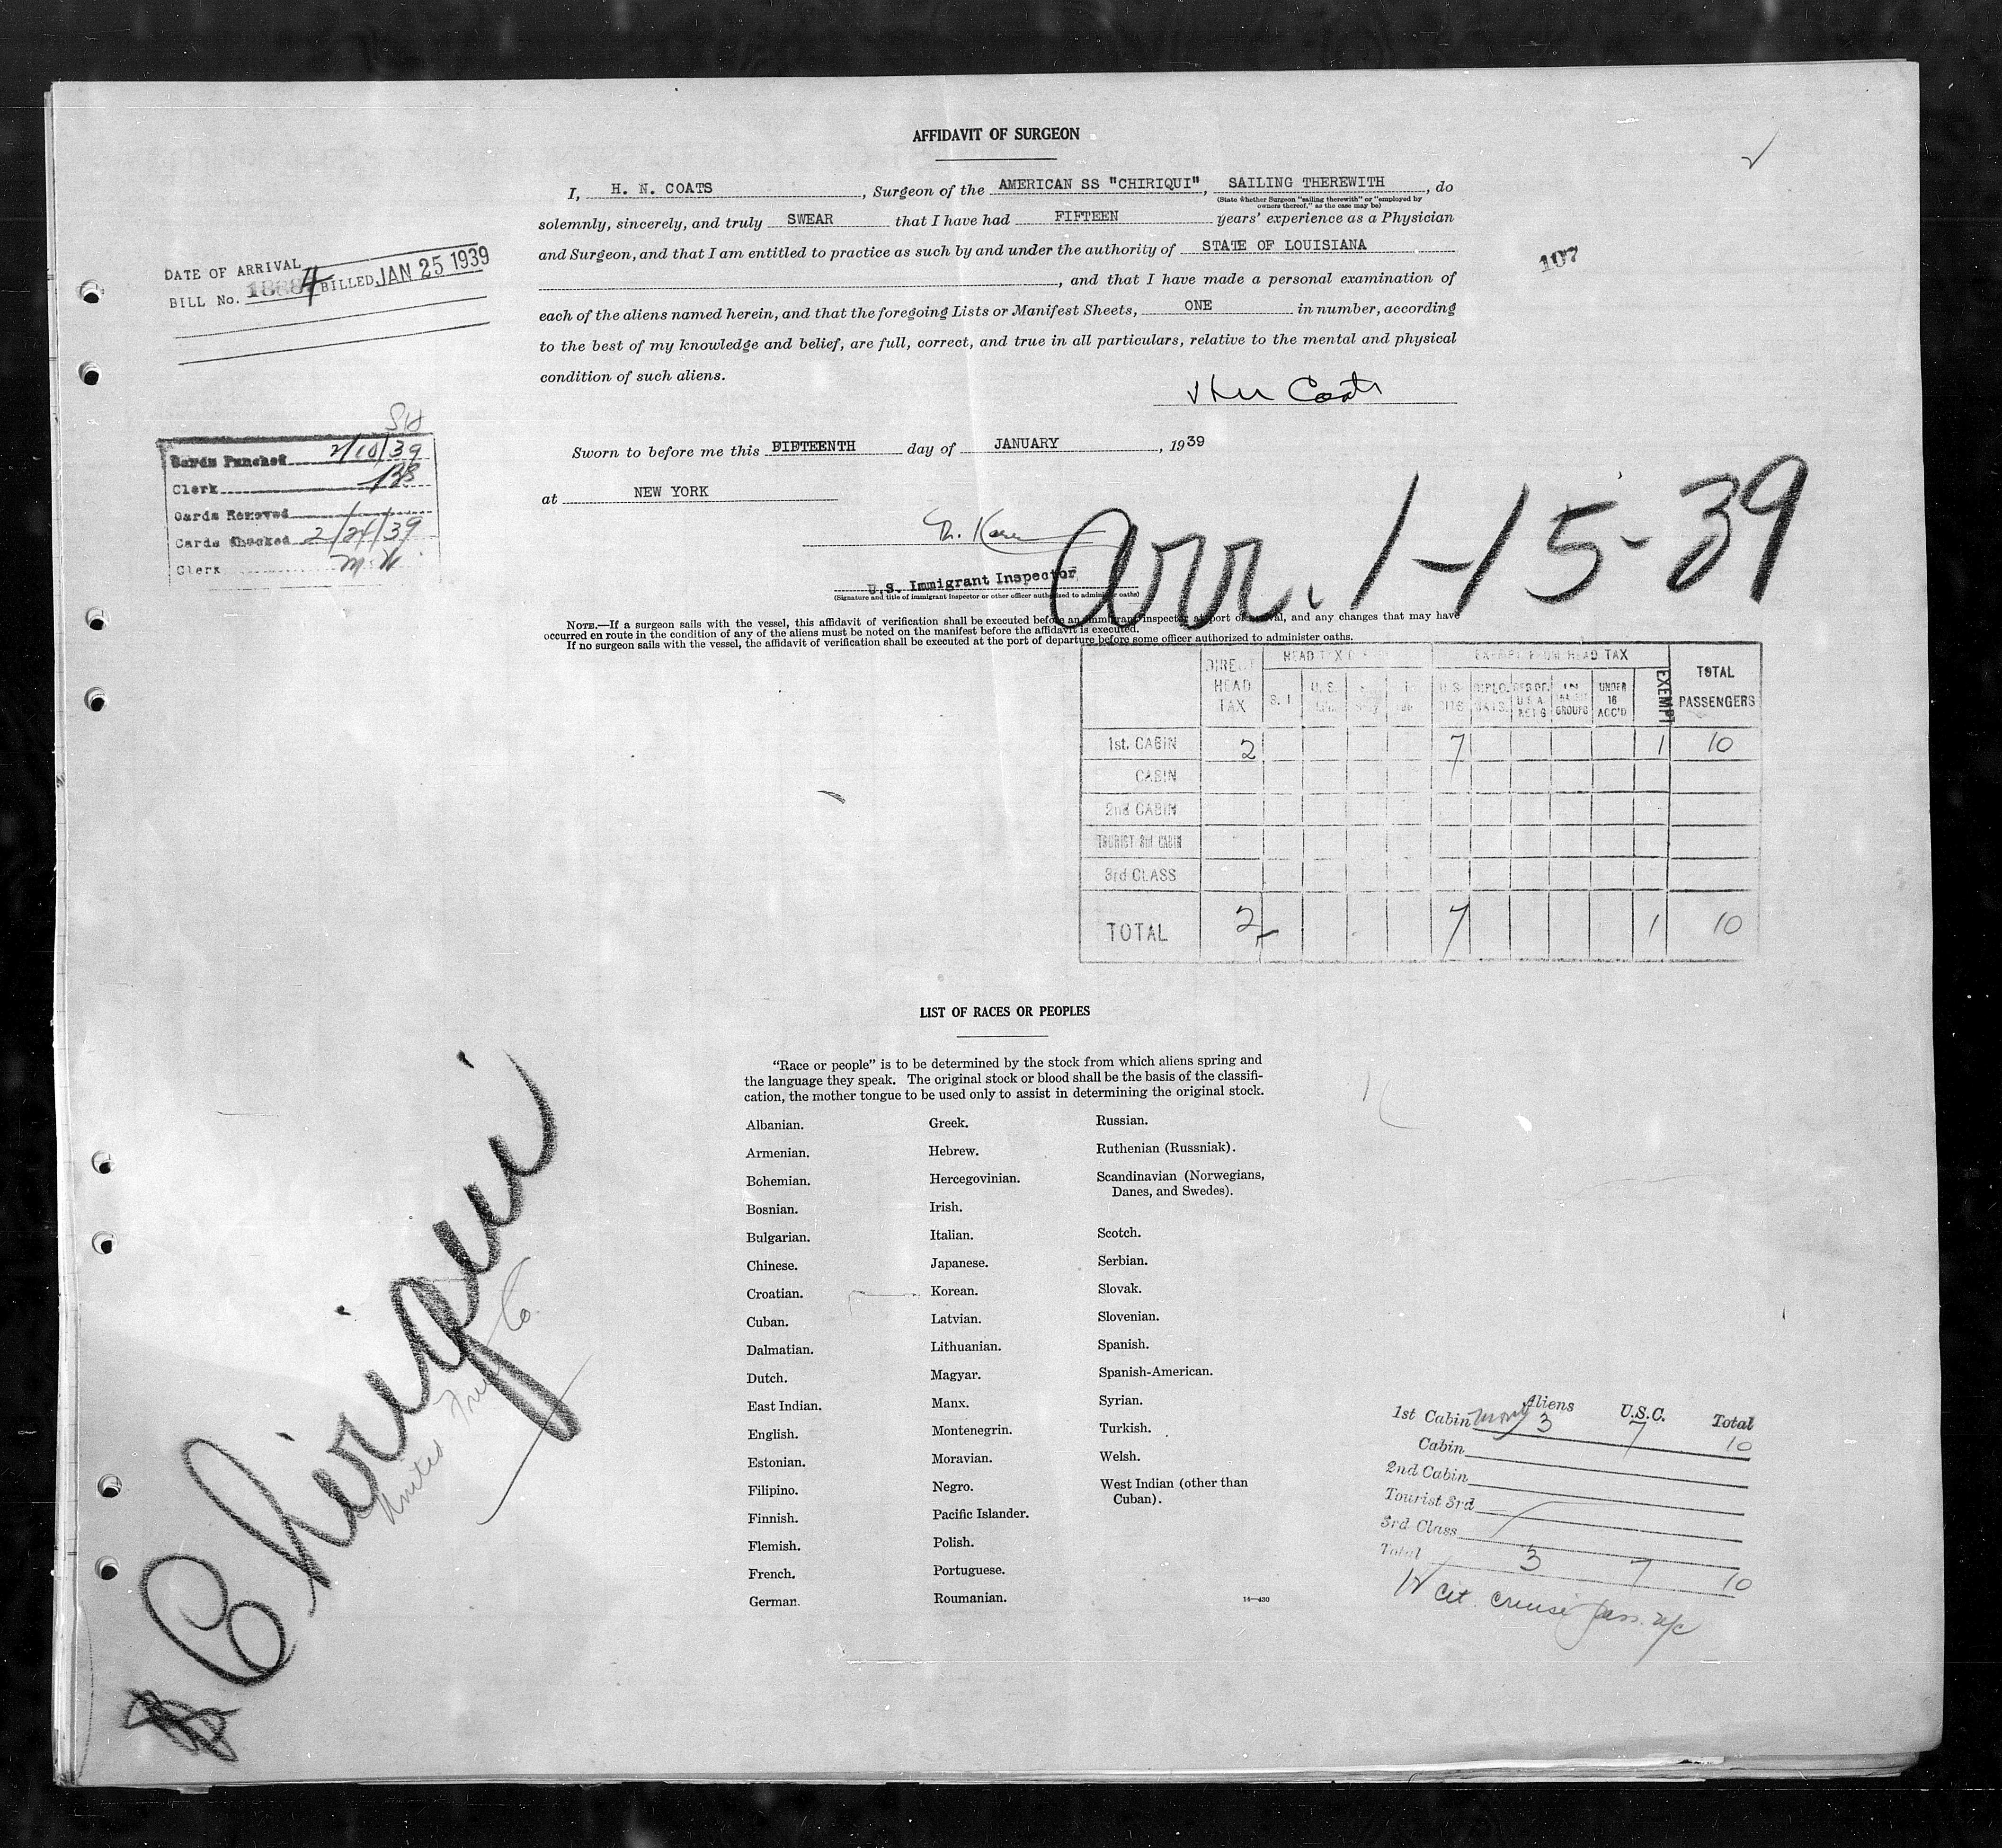 AFFIDAVIT OF SURGEON
I, H. N. COATS, Surgeon of the AMERICAN SS "CHIRIQUI", SAILING THEREWITH, do
(State whether Surgeon "sailing therewith" or "employed by owners thereof," as the case may be)
solemnly, sincerely, and truly SWEAR that I have had FIFTEEN years' experience as a Physician
and Surgeon, and that I am entitled to practice as such by and under the authority of STATE OF LOUISIANA
, and that I have made a personal examination of
each of the aliens named herein, and that the foregoing Lists or Manifest Sheets, ONE in number, according
to the best of my knowledge and belief, are full, correct, and true in all particulars, relative to the mental and physical
condition of such aliens.
Coats
Sworn to before me this FIFTEENTH day of JANUARY, 1939
at NEW YORK
U.S. Immigrant Inspector
(Signature and title of immigrant inspector or other officer authorized to administer oaths)
NOTE.—If a surgeon sails with the vessel, this affidavit of verification shall be executed before an immigrant inspector at port of arrival, and any changes that may have
occurred en route in the condition of any of the aliens must be noted on the manifest before the affidavit is executed.
If no surgeon sails with the vessel, the affidavit of verification shall be executed at the port of departure before some officer authorized to administer oaths.
107
DATE OF ARRIVAL
BILL No. BILLED JAN 25 1939
Cards Punched 2/10/39
Clerk
Cards Removed
Cards Checked 2/24/39
Clerk
Arr. 1-15-39
DIRECT HEAD TAX
S. I.
U. S.
EXEMPT FROM HEAD TAX
UNDER 16 ACC'D
EXEMPT
TOTAL PASSENGERS
1st. CABIN 2 7 1 10
CABIN
2nd CABIN
TOURIST 3rd CABIN
3rd CLASS
TOTAL 2 7 1 10
LIST OF RACES OR PEOPLES
"Race or people" is to be determined by the stock from which aliens spring and
the language they speak. The original stock or blood shall be the basis of the classifi-
cation, the mother tongue to be used only to assist in determining the original stock.
Albanian.
Armenian.
Bohemian.
Bosnian.
Bulgarian.
Chinese.
Croatian.
Cuban.
Dalmatian.
Dutch.
East Indian.
English.
Estonian.
Filipino.
Finnish.
Flemish.
French.
German.
Greek.
Hebrew.
Hercegovinian.
Irish.
Italian.
Japanese.
Korean.
Latvian.
Lithuanian.
Magyar.
Manx.
Montenegrin.
Moravian.
Negro.
Pacific Islander.
Polish.
Portuguese.
Roumanian.
Russian.
Ruthenian (Russniak).
Scandinavian (Norwegians,
Danes, and Swedes).
Scotch.
Serbian.
Slovak.
Slovenian.
Spanish.
Spanish-American.
Syrian.
Turkish.
Welsh.
West Indian (other than
Cuban).
14—430
Chiriqui
United Fruit Co.
Aliens U.S.C. Total
1st Cabin 3 7 10
Cabin
2nd Cabin
Tourist 3rd
3rd Class
Total 3 7 10
cit. cruise pass.